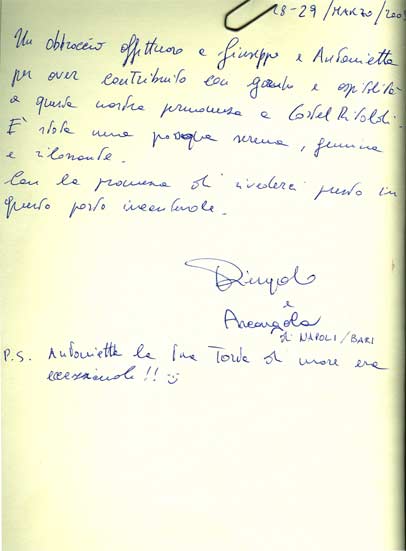 28-29/MARZO/200
Un abbraccio affettuoso a Giuseppe e Antonietta
per aver contribuito con garbo e ospitalità
a questa nostra permanenza a Castel Ritaldi.
È stata una pasqua serena, genuina
e rilassante.
Con la promessa di rivederci presto in
questo posto incantevole.
e
Arcangela
di NAPOLI/BARI
P.S. Antonietta la tua Torta di more era
eccezionale!!